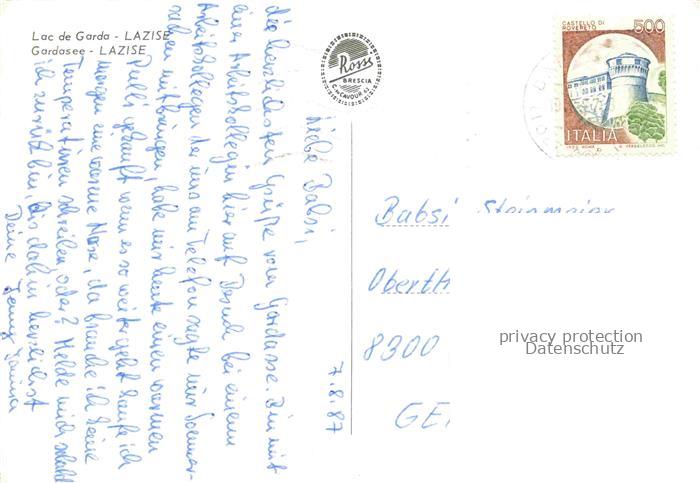 Lac de Garda - LAZISE
Gardasee - LAZISE
Rossi
BRESCIA
C. CAVOUR 42
CASTELLO DI ROVERETO
500
ITALIA
7.8.87
Liebe Babsi,
die herzlichsten Grüße vom Gardasee. Bin mit
einer Arbeitskollegin hier auf Besuch bei einem
Arbeitskollegen der uns am Telefon sagte wir Sommer-
sachen mitbringen, habe mir heute einen warmen
Pulli gekauft wenn es so weiter geht kaufe ich
morgen eine warme Hose, da brauche ich keine
Temperaturen schreiben oder? Melde mich sobald
ich zurück bin, bis dahin herzlichst
Deine
Babsi Steinmeier
Oberth
8300
GE
privacy protection
Datenschutz